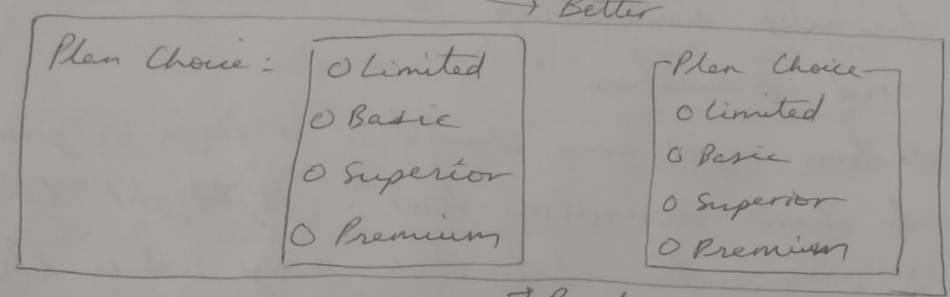 → Better
Plan Choice:
O Limited
O Basic
O Superior
O Premium
Plan Choice
O Limited
O Basic
O Superior
O Premium